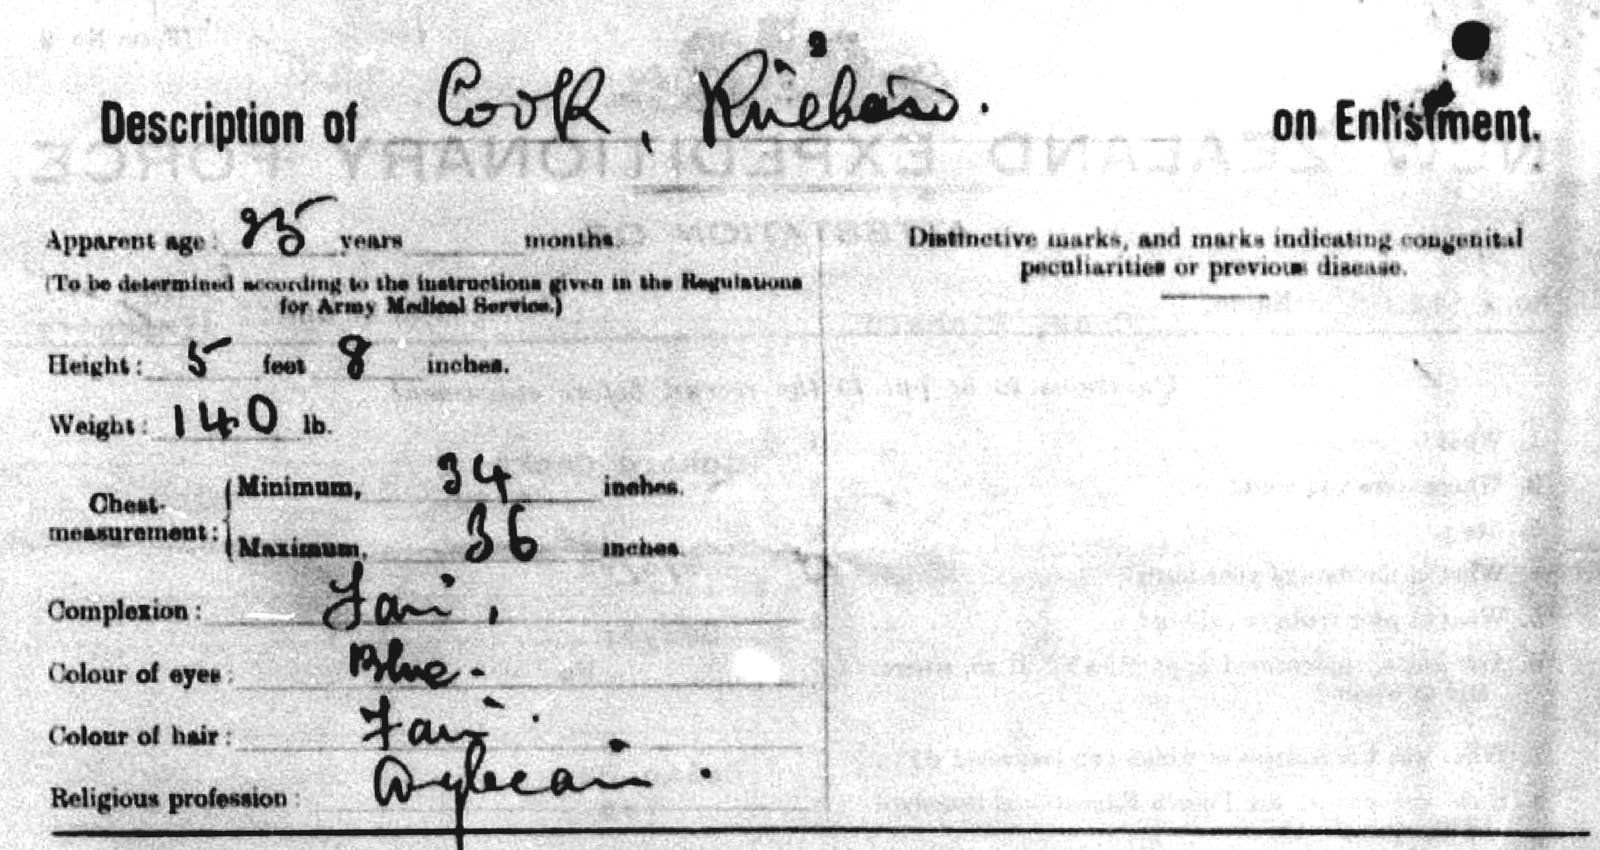 2
Description of Cook, Richard. on Enlistment.
Apparent age: 25 years months.
(To be determined according to the instructions given in the Regulations
for Army Medical Service.)
Height: 5 feet 8 inches.
Weight: 140 lb.
Chest-measurement: Minimum, 34 inches.
Maximum, 36 inches.
Complexion: Fair.
Colour of eyes: Blue.
Colour of hair: Fair.
Religious profession: Anglican.
Distinctive marks, and marks indicating congenital
peculiarities or previous disease.